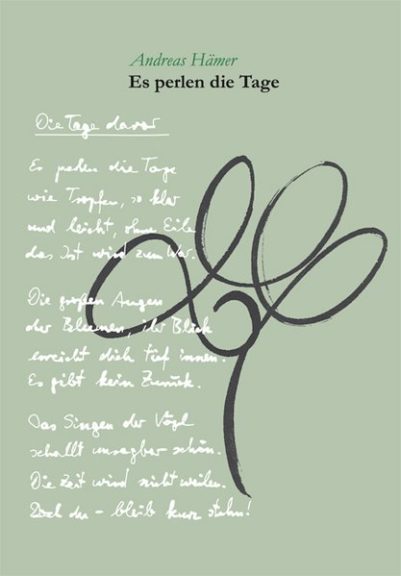 Andreas Hämer
Es perlen die Tage
Die Tage davor
Es perlen die Tage
wie Tropfen, so klar
und leicht, ohne Eile
das Ist wird zum War.
Die großen Augen
der Blumen, ihr Blick
erreicht dich tief innen.
Es gibt kein Zurück.
Das Singen der Vögl
schallt unsagbar schön.
Die Zeit wird nicht weilen.
Doch du – bleib kurz stehn!